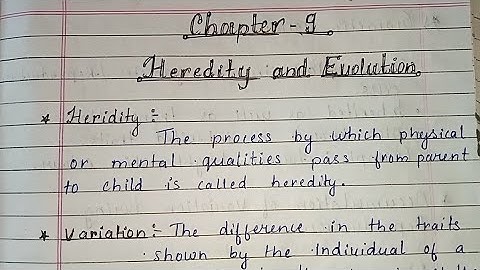 Chapter - 9
Heredity and Evolution
* Heridity :-
The process by which physical
or mental qualities pass from parent
to child is called heredity.
* Variation :- The difference in the traits
shown by the Individual of a